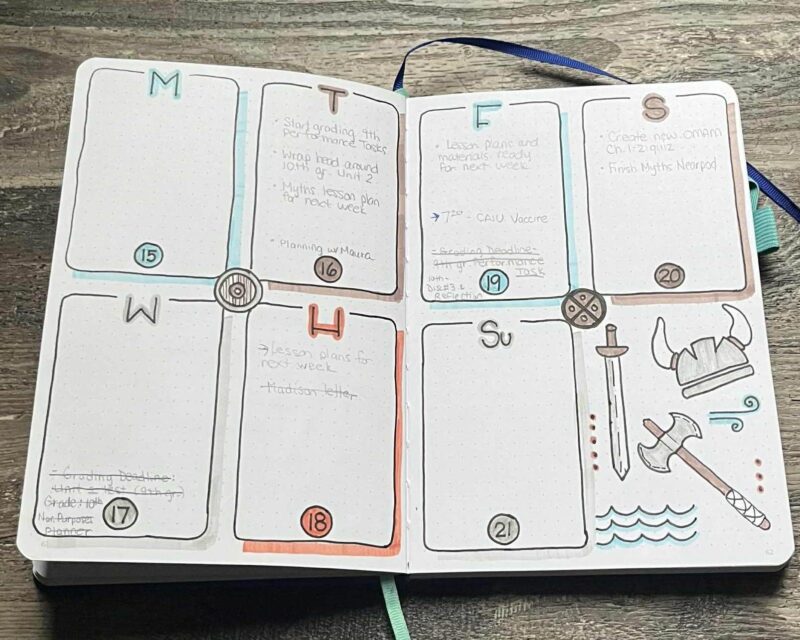 M
15
T
• Start grading 9th
performance Tasks
• Wrap head around
10th gr. Unit 2
• Myths lesson plan
for next week
• Planning w/ Maura
16
W
- Grading Deadline:
Unit 2 Test (9th gr.)
Grade: 10th
Planner
17
H
→ Lesson plans for
next week
Madison letter
18
F
• Lesson plans and
materials ready
for next week
→ 7:20 - CAIU Vaccine
- Grading Deadline-
9th gr. Performance
Task
10th-
Reflection
19
S
• Create new OMAM
• Finish Myths Nearpod
20
Su
21
62